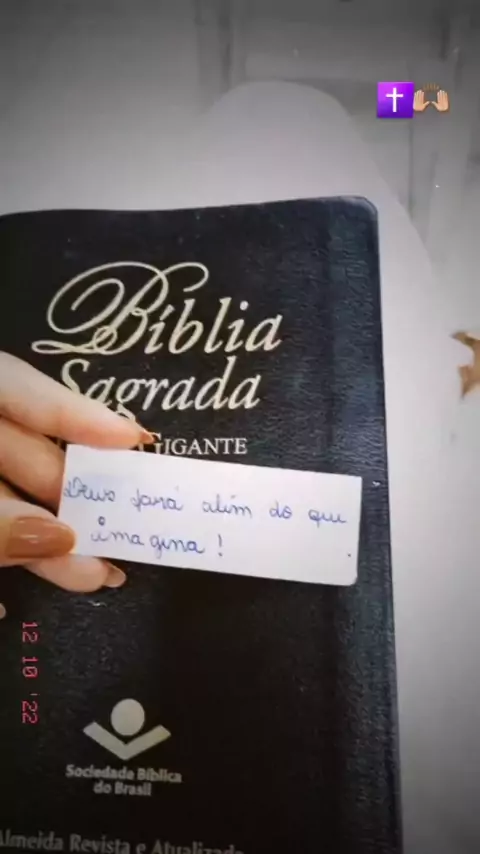 Bíblia
Sagrada
GIGANTE
Deus fará além do que
imagina!
12 10 '22
Sociedade Bíblica
do Brasil
Almeida Revista e Atualizada